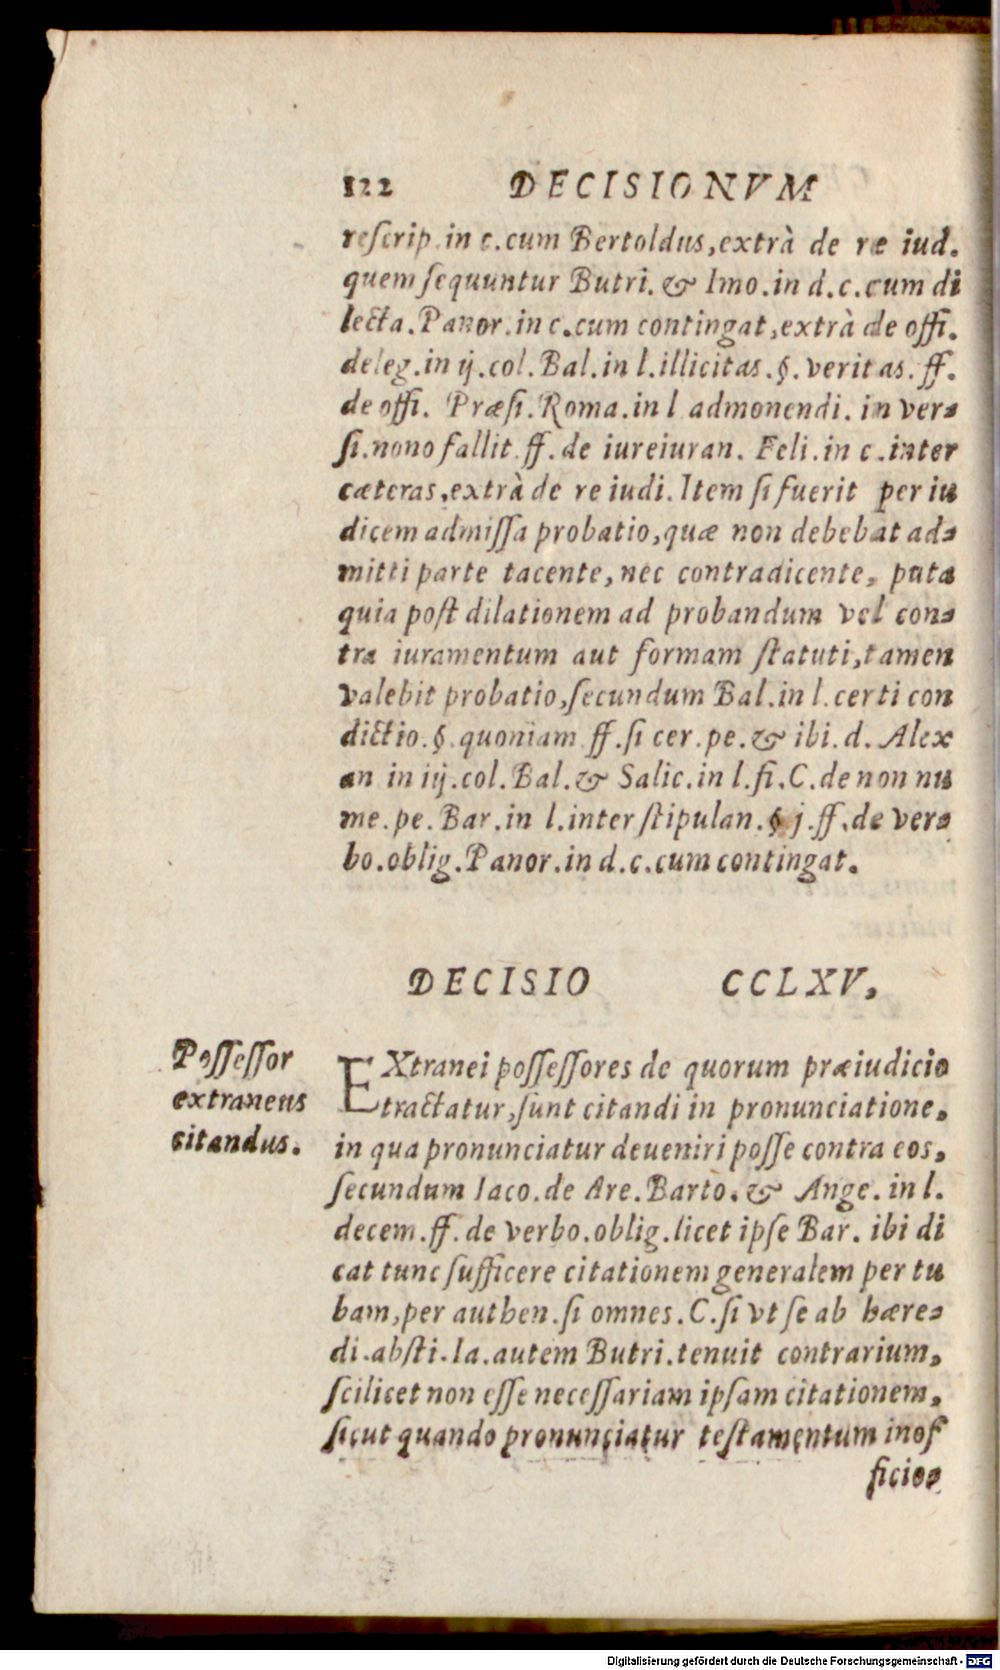 122 DECISIONVM
reſcrip. in c. cum Bertoldus, extrà de re iud.
quem ſequuntur Butri. & Imo. in d. c. cum di
lecta. Panor. in c. cum contingat, extrà de offi.
deleg. in ij. col. Bal. in l. illicitas. §. veritas. ff.
de offi. Præſi. Roma. in l admonendi. in ver-
ſi. nono fallit. ff. de iureiuran. Feli. in c. inter
cæteras, extrà de re iudi. Item ſi fuerit per iu
dicem admiſſa probatio, quæ non debebat ad-
mitti parte tacente, nec contradicente, puta
quia poſt dilationem ad probandum vel con-
tra iuramentum aut formam ſtatuti, tamen
valebit probatio, ſecundum Bal. in l. certi con
dictio. §. quoniam ff. ſi cer. pe. & ibi. d. Alex
an in iij. col. Bal. & Salic. in l. fi. C. de non nu
me. pe. Bar. in l. inter ſtipulan. § j. ff. de ver-
bo. oblig. Panor. in d. c. cum contingat.
DECISIO CCLXV,
Poſſeſſor
extraneus
citandus.
EXtranei poſſeſſores de quorum præiudicio
tractatur, ſunt citandi in pronunciatione,
in qua pronunciatur deueniri poſſe contra eos,
ſecundum Iaco. de Are. Barto. & Ange. in l.
decem. ff. de verbo. oblig. licet ipſe Bar. ibi di
cat tunc ſufficere citationem generalem per tu
bam, per authen. ſi omnes. C. ſi vt ſe ab hære-
di. abſti. la. autem Butri. tenuit contrarium,
ſcilicet non eſſe neceſſariam ipſam citationem,
ſicut quando pronunciatur teſtamentum inof
ficio-
Digitalisierung gefördert durch die Deutsche Forschungsgemeinschaft - DFG